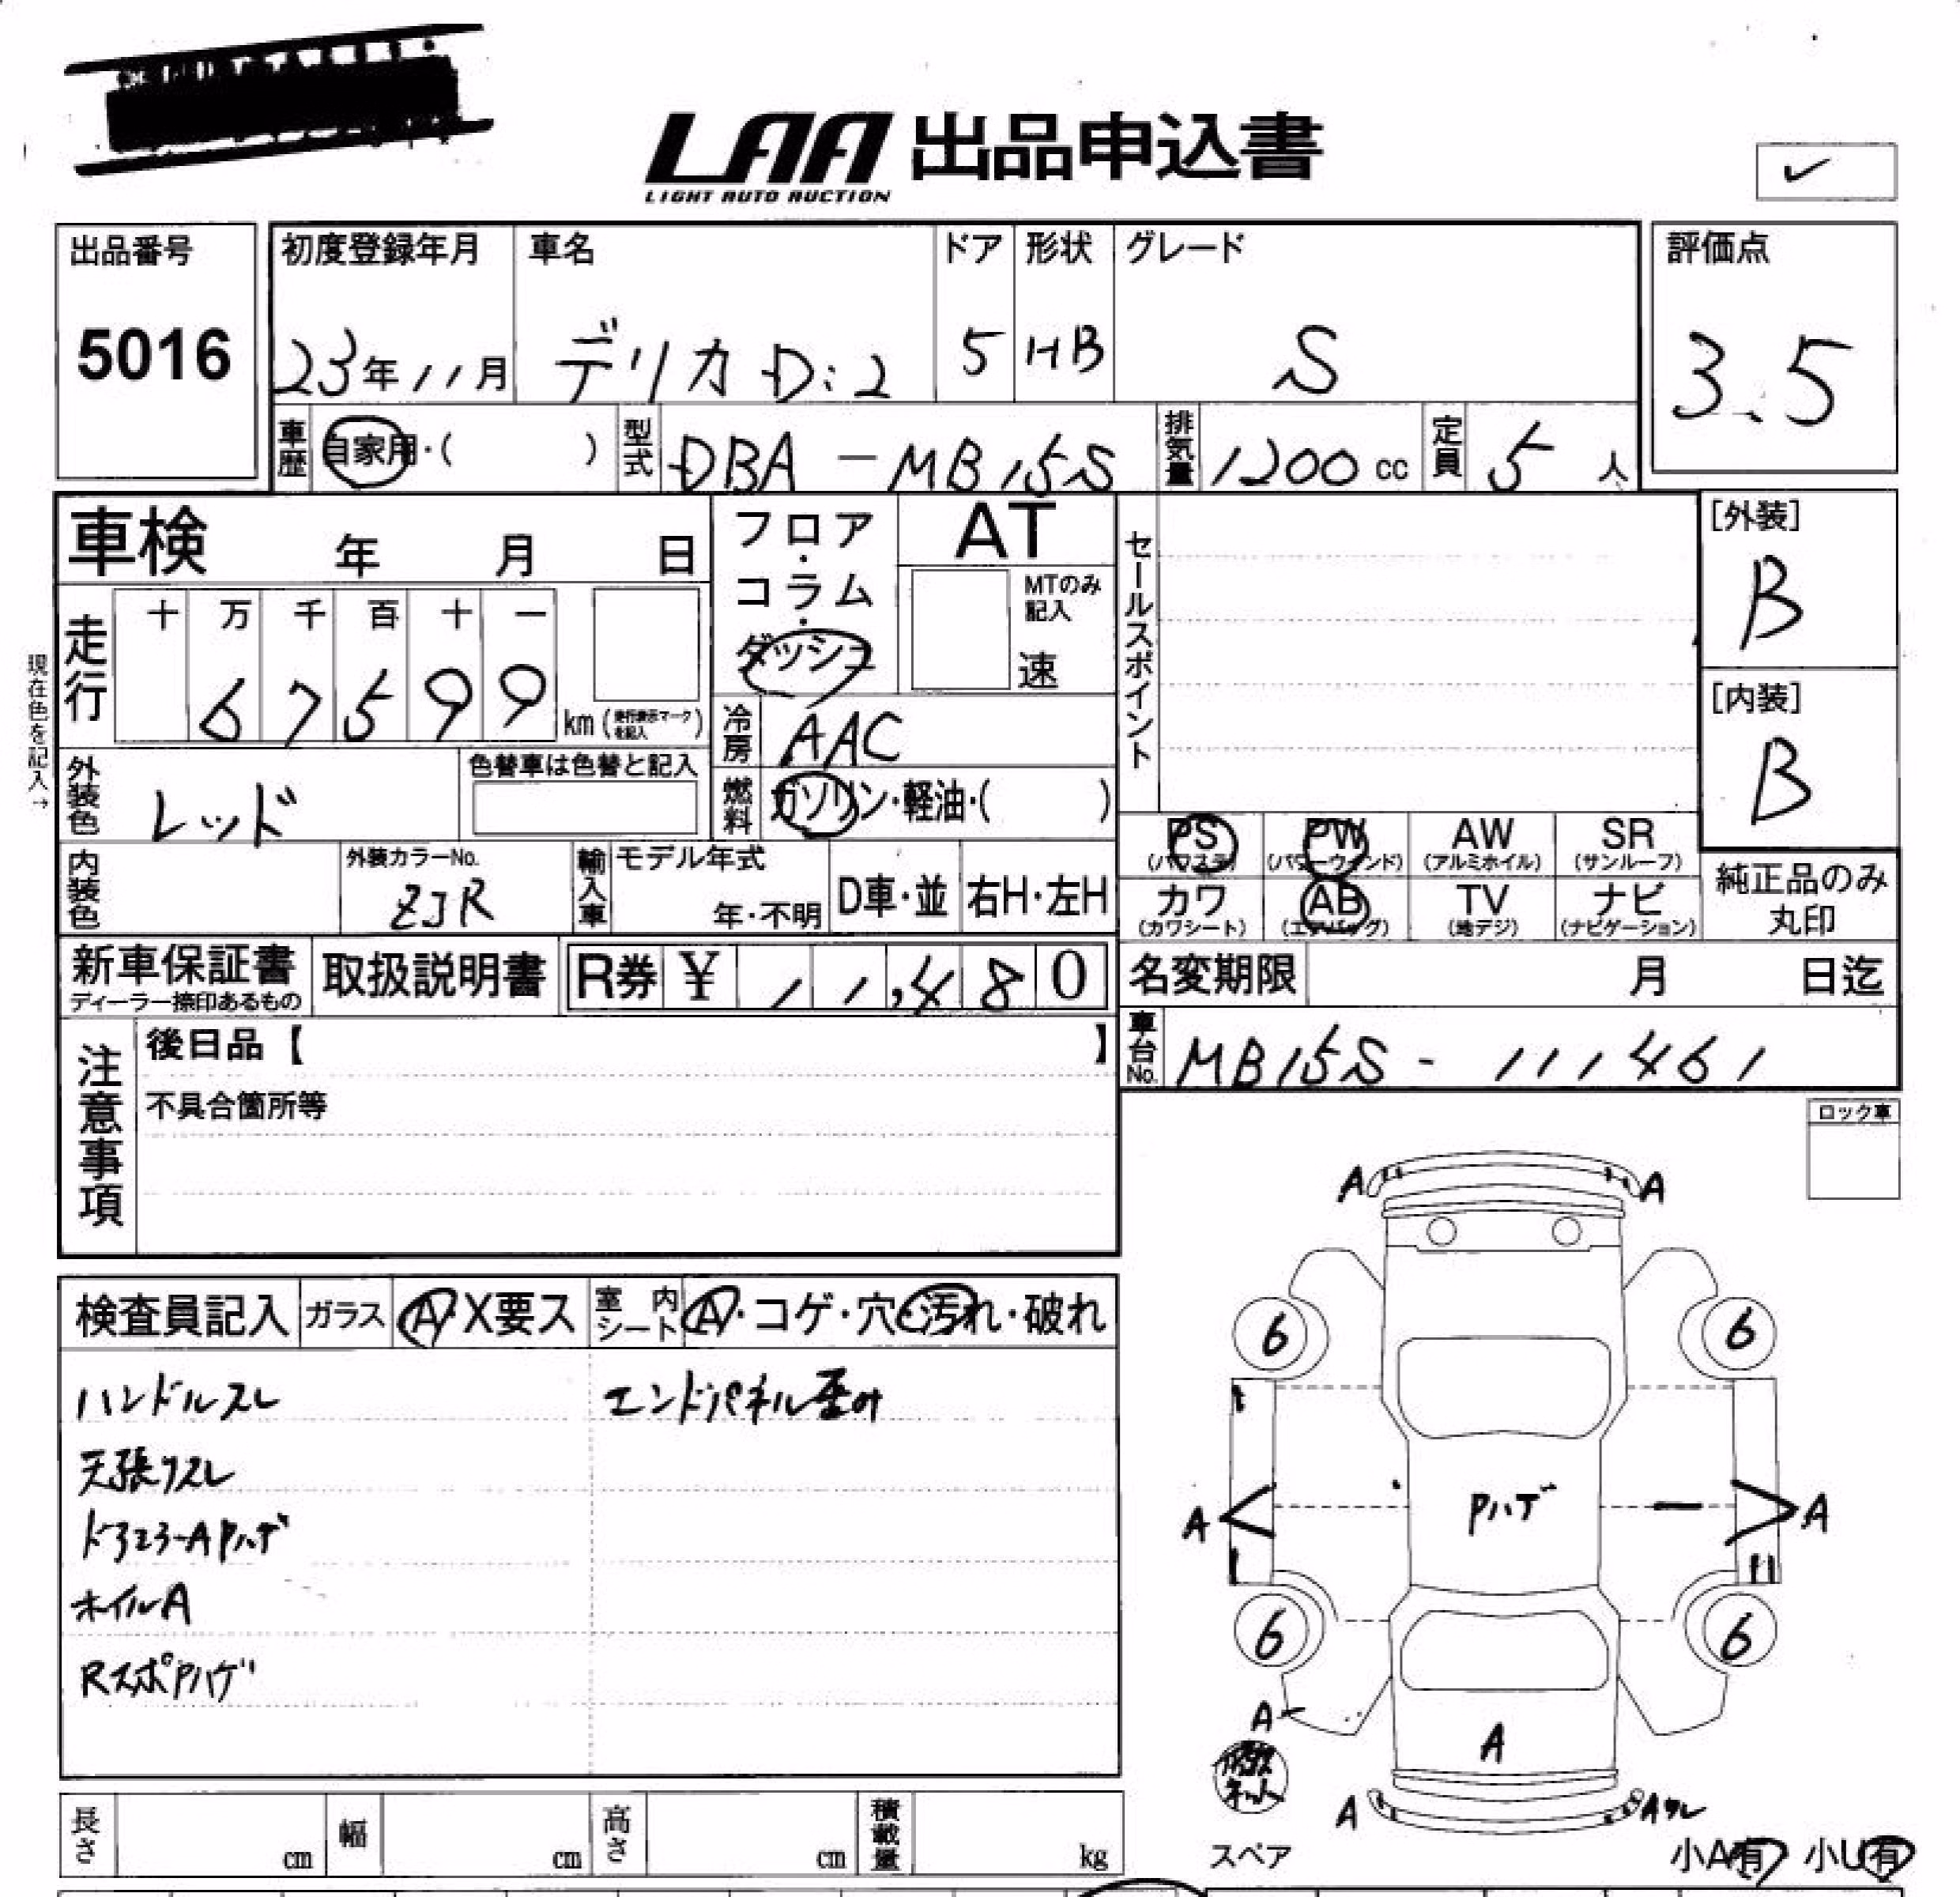 LAA 出品申込書
LIGHT AUTO AUCTION
出品番号
5016
初度登録年月 車名 ドア 形状 グレード
23年11月 デリカD:2 5 HB S
評価点
3.5
車歴 自家用・( ) 型式 DBA-MB15S 排気量 1200cc 定員 5人
車検 年 月 日
フロア・コラム・ダッシュ
AT
MTのみ記入
速
セールスポイント
[外装]
B
[内装]
B
現在色を記入→
走行 十 万 千 百 十 一
6 7 5 9 9 km (走行表示マークを記入)
冷房 AAC
外装色 レッド
色替車は色替と記入
燃料 ガソリン・軽油・( )
PS (パワステ) PW (パワーウインド) AW (アルミホイル) SR (サンルーフ)
カワ (カワシート) AB (エアバッグ) TV (地デジ) ナビ (ナビゲーション)
純正品のみ丸印
内装色
外装カラーNo.
ZJR
輸入車 モデル年式
年・不明 D車・並 右H・左H
新車保証書 取扱説明書 R券 ¥ 11,480
ディーラー捺印あるもの
名変期限 月 日迄
車台No. MB15S-111461
注意事項
後日品【 】
不具合箇所等
ロック車
検査員記入 ガラス A・X要ス 室内シート A・コゲ・穴・汚れ・破れ
ハンドルスレ エンドパネル歪み
天張リスレ
ドアミラーA Pハゲ
ホイルA
RスポPハゲ
A A
6 6
A Pハゲ A
6 6
A
A
A Aワレ
スペア
小A有 小U有
長さ cm 幅 cm 高さ cm 積載量 kg